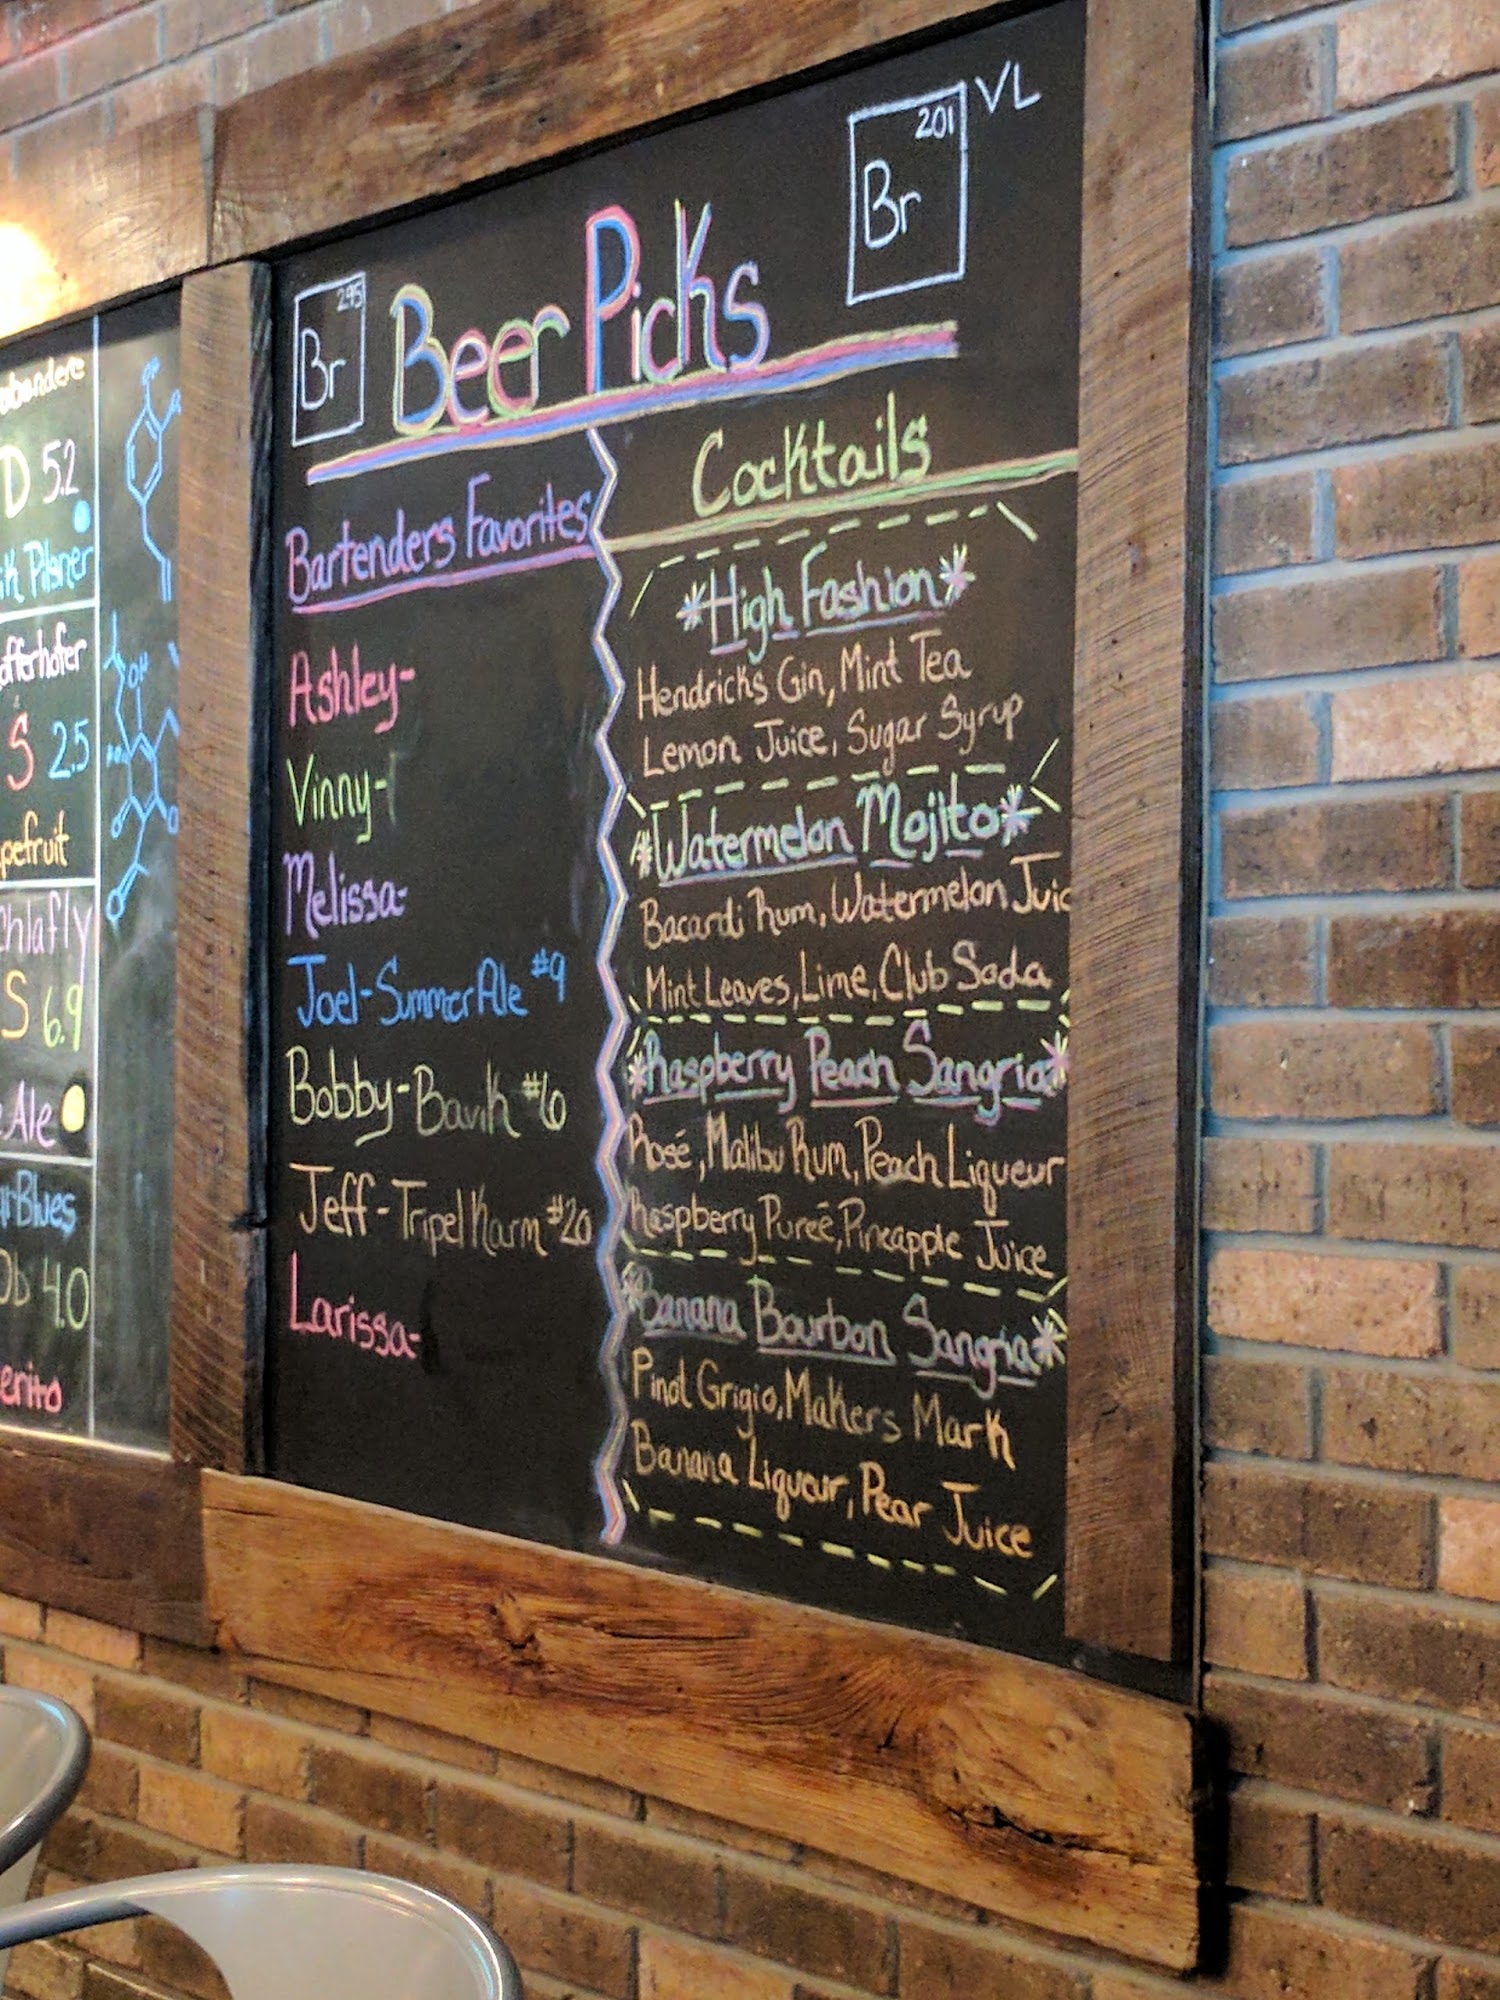 abendere
D 5.2
ik Pilsner
offerhofer
S 2.5
pefruit
chlafly
S 6.9
e Ale
Blues
Ob 4.0
erito
OH
201
Br
VL
295
Br
Beer Picks
Bartenders Favorites
Ashley-
Vinny-
Melissa-
Joel-Summer Ale #9
Bobby-Bavik #6
Jeff-Tripel Karm #20
Larissa-
Cocktails
*High Fashion*
Hendricks Gin, Mint Tea
Lemon Juice, Sugar Syrup
*Watermelon Mojito*
Bacardi Rum, Watermelon Juic
Mint Leaves, Lime, Club Soda
*Raspberry Peach Sangria*
Rosé, Malibu Rum, Peach Liqueur
Raspberry Pureé, Pineapple Juice
*Banana Bourbon Sangria*
Pinot Grigio, Makers Mark
Banana Liqueur, Pear Juice